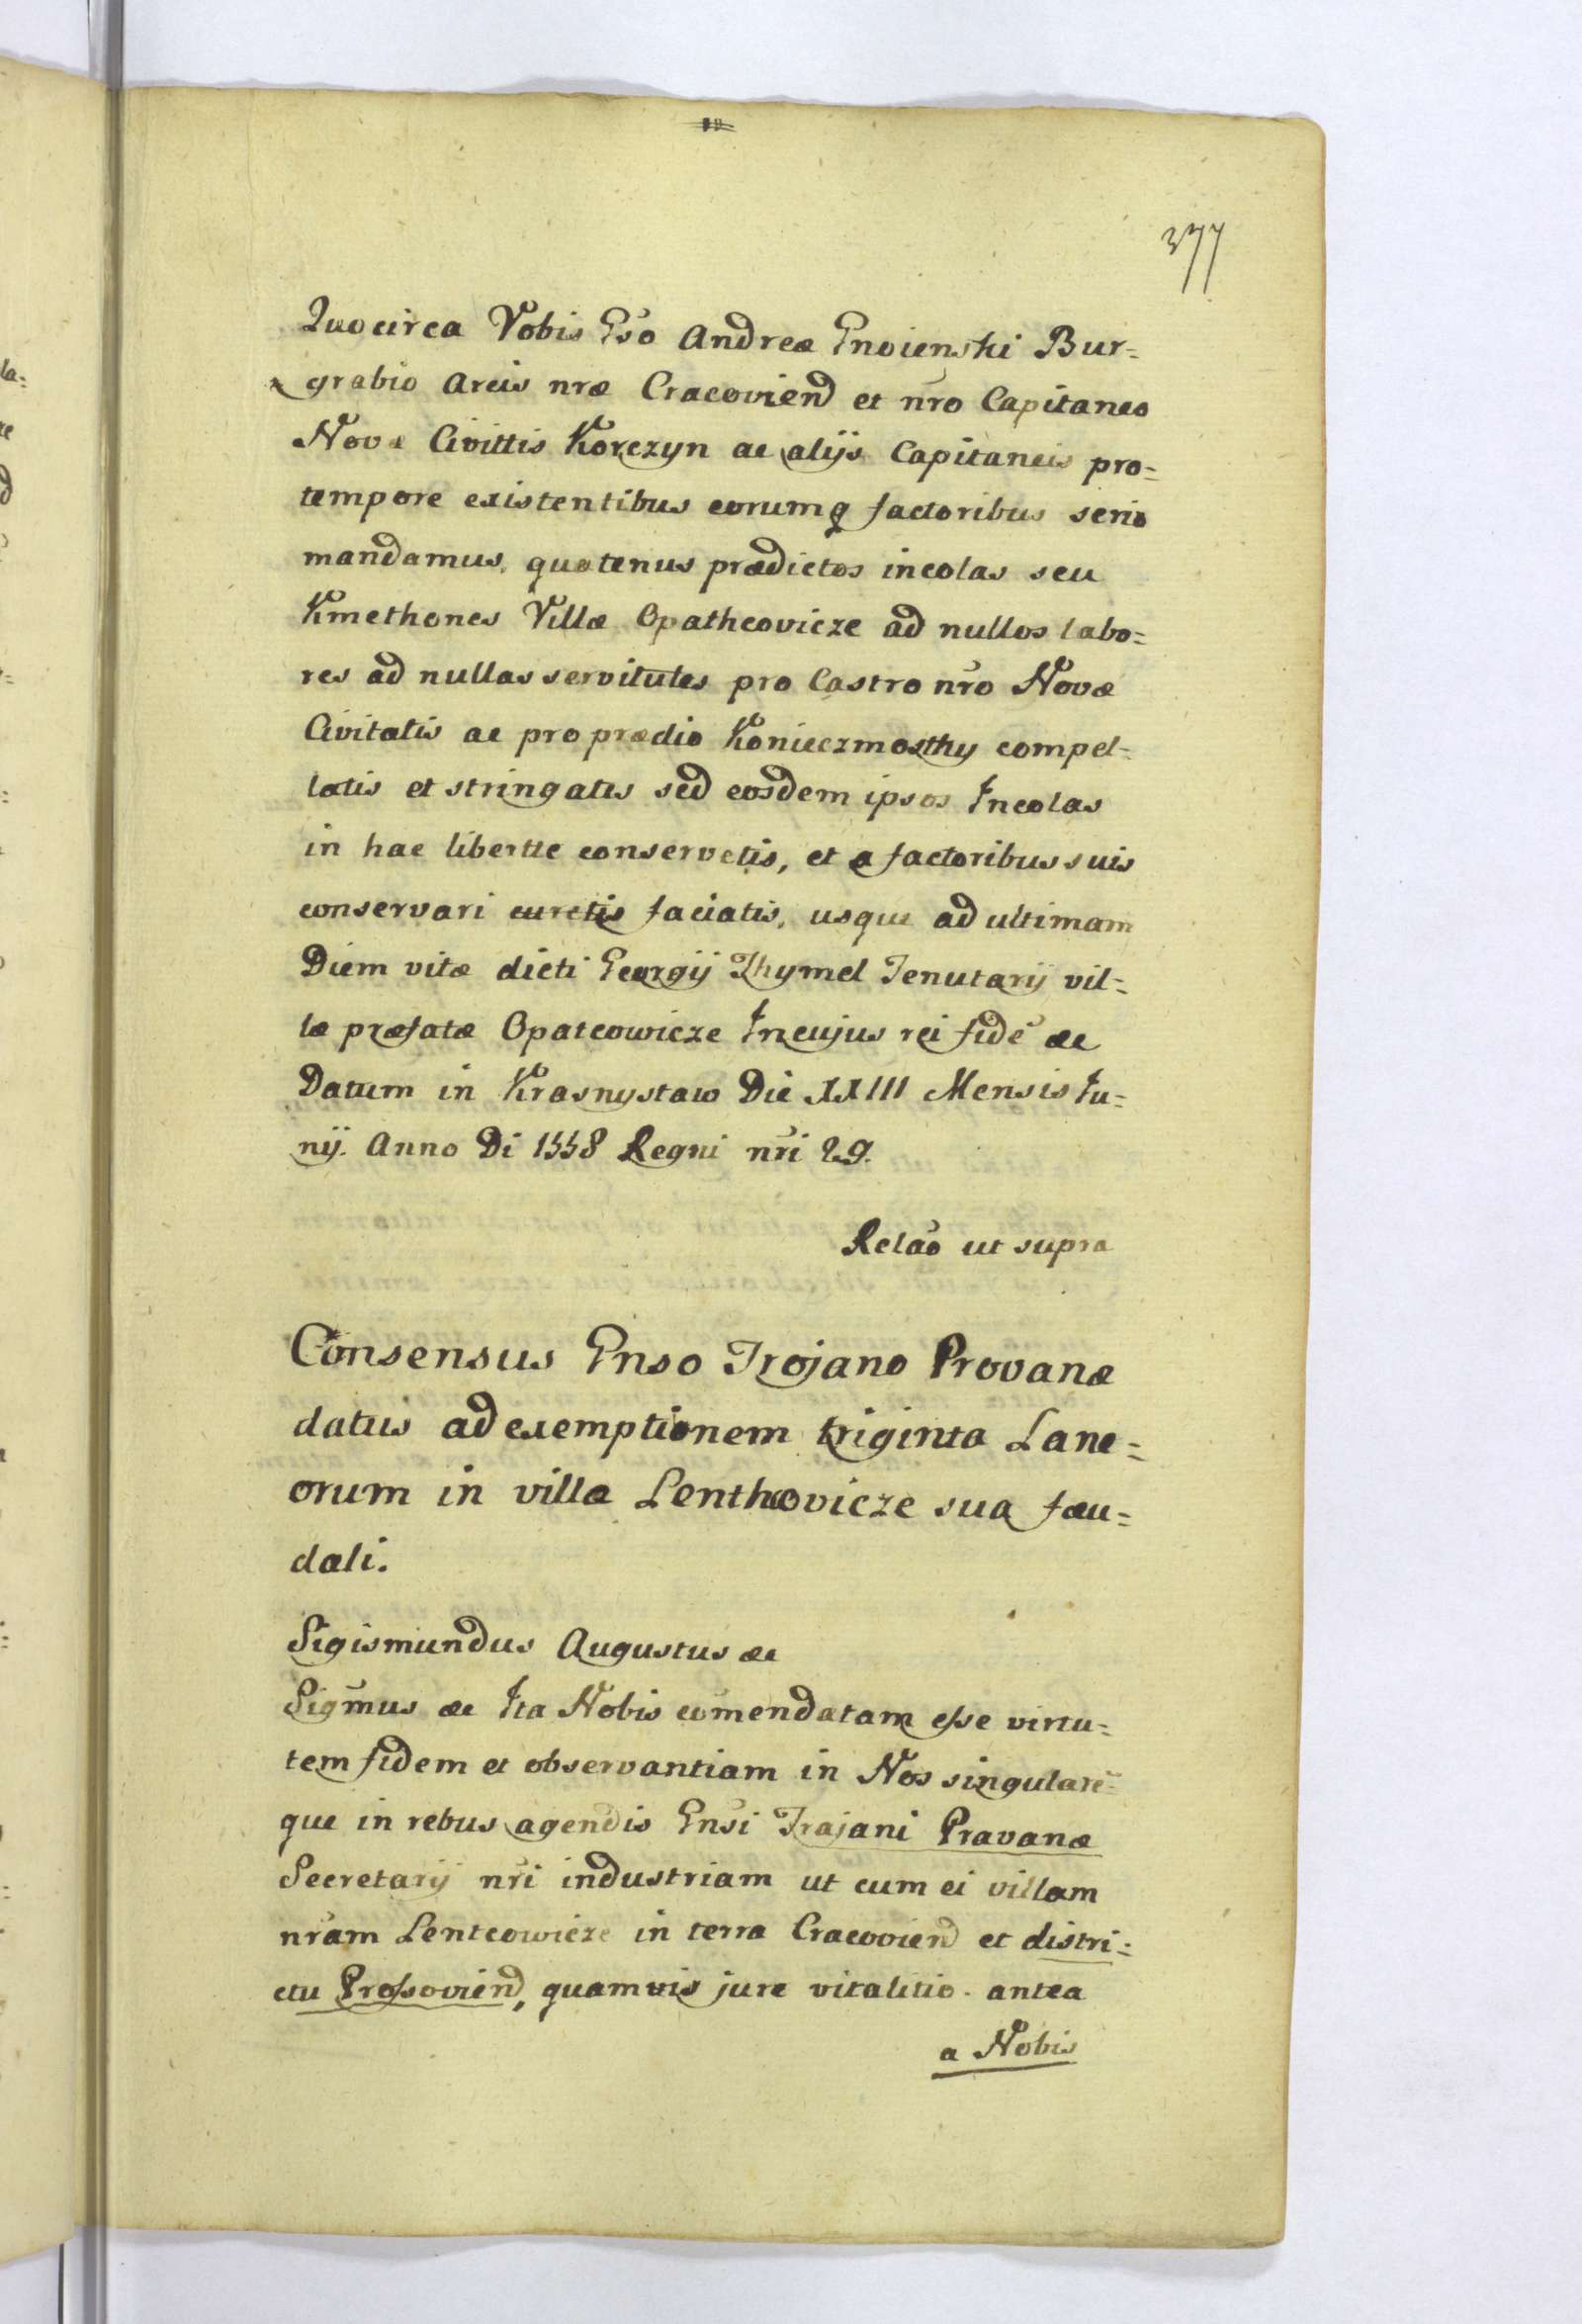 377
Quocirca Vobis Gso Andreæ Gnoienski Bur=
grabio Arcis nræ Cracovien et nro Capitaneo
Novæ Civittis Korczyn ac alijs Capitaneis pro=
tempore existentibus eorumq factoribus serio
mandamus, quatenus prædictos incolas seu
Kmethones Villæ Opatheovicze ad nullos labo=
res ad nullas servitutes pro Castro nro Novæ
Civitatis ac pro prædio Konieczmosthy compel=
latis et stringatis sed eosdem ipsos Incolas
in hac libertte conservetis, et a factoribus suis
conservari curetis faciatis, usque ad ultimam
Diem vitæ dicti Georgij Thymel Tenutarij vil=
læ præfatæ Opatcowicze In cujus rei fidē &c
Datum in Krasnystaw Die XXIII Mensis Ju=
nij. Anno Di 1558 Regni nri 29.
Relaõ ut supra
Consensus Gnso Trojano Provanæ
datus ad exemptionem triginta Lane=
orum in villa Lenthcovicze sua fæu=
dali.
Sigismundus Augustus &c
Sigmus &c Ita Nobis comendatam esse virtu=
tem fidem et observantiam in Nos singularē=
que in rebus agendis Gnsi Trajani Pravanæ
Secretarij nri industriam ut cum ei villam
nram Lentcowicze in terra Cracovien et distri=
ctu Prossovien, quamvis jure vitalitio antea
a Nobis